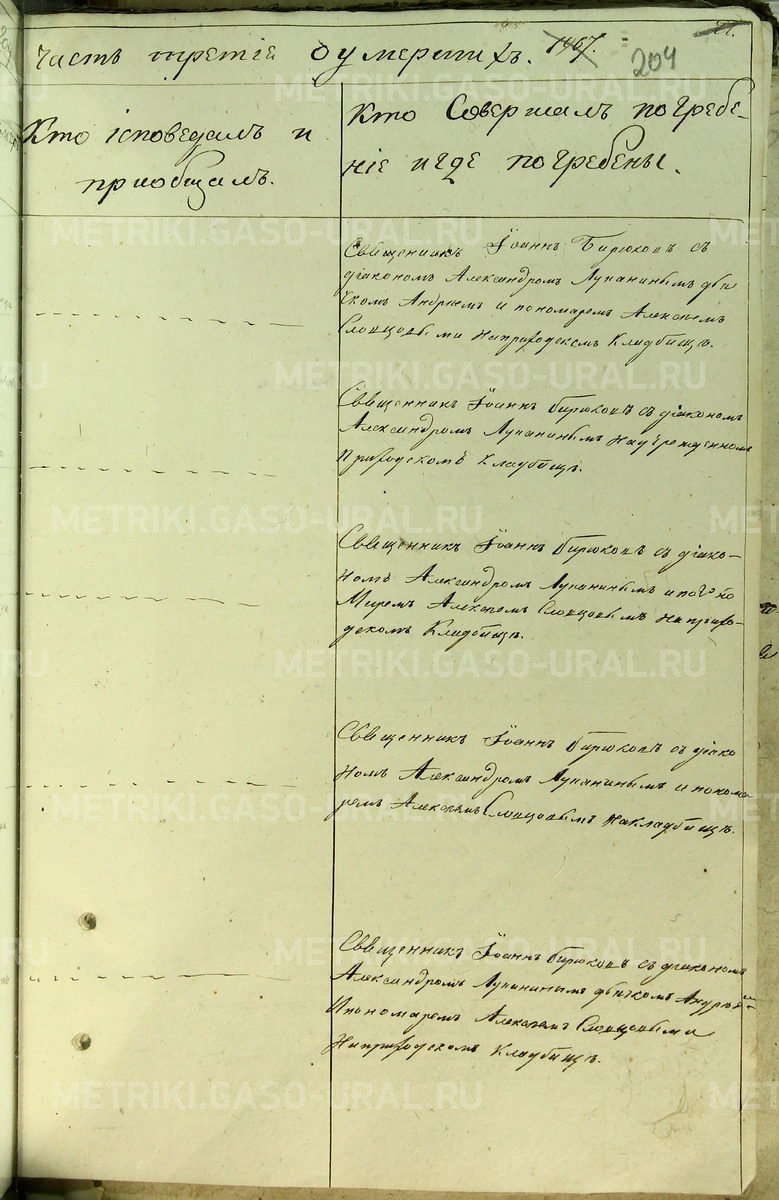 Часть третія о умершихъ. 1067. 204 21.
Кто ісповедалъ и
приобщалъ.
Кто Совершалъ погребе-
ніе и где погребены.
Священникъ Іоаннъ Бирюковъ съ
діакономъ Александромъ Лупанинымъ дья
чкомъ Андріемъ и пономаремъ Алексѣемъ
Словцовыми На приходскомъ Кладбищѣ.
Священникъ Іоаннъ Бирюковъ съ діакономъ
Александромъ Лупанинымъ На учрежденномъ
Приходскомъ кладбищѣ.
Священникъ Іоаннъ Бирюковъ съ діако-
номъ Александромъ Лупанинымъ и поно
Маремъ Алексѣемъ Словцовымъ На прихо-
дскомъ Кладбищѣ.
Священникъ Іоаннъ Бирюковъ съ діако
номъ Александромъ Лупанинымъ и понома
ремъ Алексѣемъ Словцовымъ На кладбищѣ.
Священникъ Іоаннъ Бирюковъ съ діакономъ
Александромъ Лупанинымъ дьячкомъ Андрѣе
И пономаремъ Алексѣемъ Словцовыми
На приходскомъ кладбищѣ.
METRIKI.GASO-URAL.RU